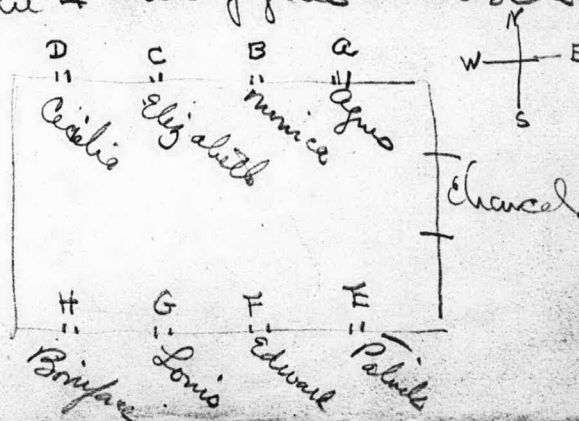 N
D C B A
W E
S
Cecilia Elizabeth Monica Agnes
Chancel
H G F E
Boniface Louis Edward